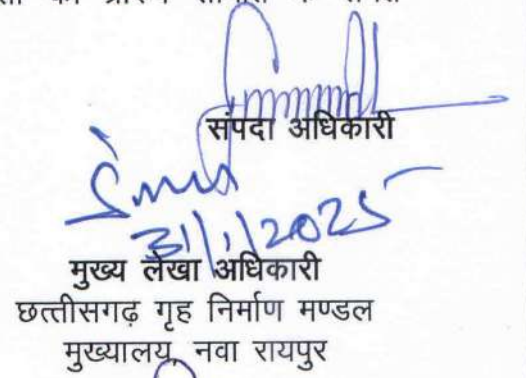 संपदा अधिकारी
31/1/2025
मुख्य लेखा अधिकारी
छत्तीसगढ़ गृह निर्माण मण्डल
मुख्यालय, नवा रायपुर